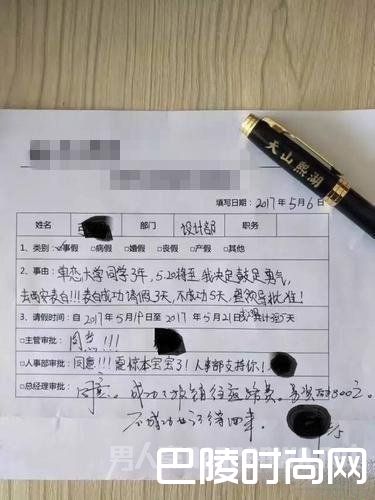 天山熙湖
填写日期：2017年5月6日
姓名 部门 设计部 职务
1、类别：☑事假 □病假 □婚假 □丧假 □产假 □其他
2、事由：单恋大学同学3年，5.20将至，我决定鼓足勇气，
去南京表白!!!表白成功请假3天，不成功5天，恳领导批准！
3、请假时间：自2017年5月19日至 2017年5月21日 共计 5天
□主管审批：同意!!!
□人事部审批：同意!!!震惊本宝宝了！人事部支持你！
□总经理审批：同意。成功了报销往返路费，再奖励800元。
不成功也记得回来。
男人
巴陵时尚网